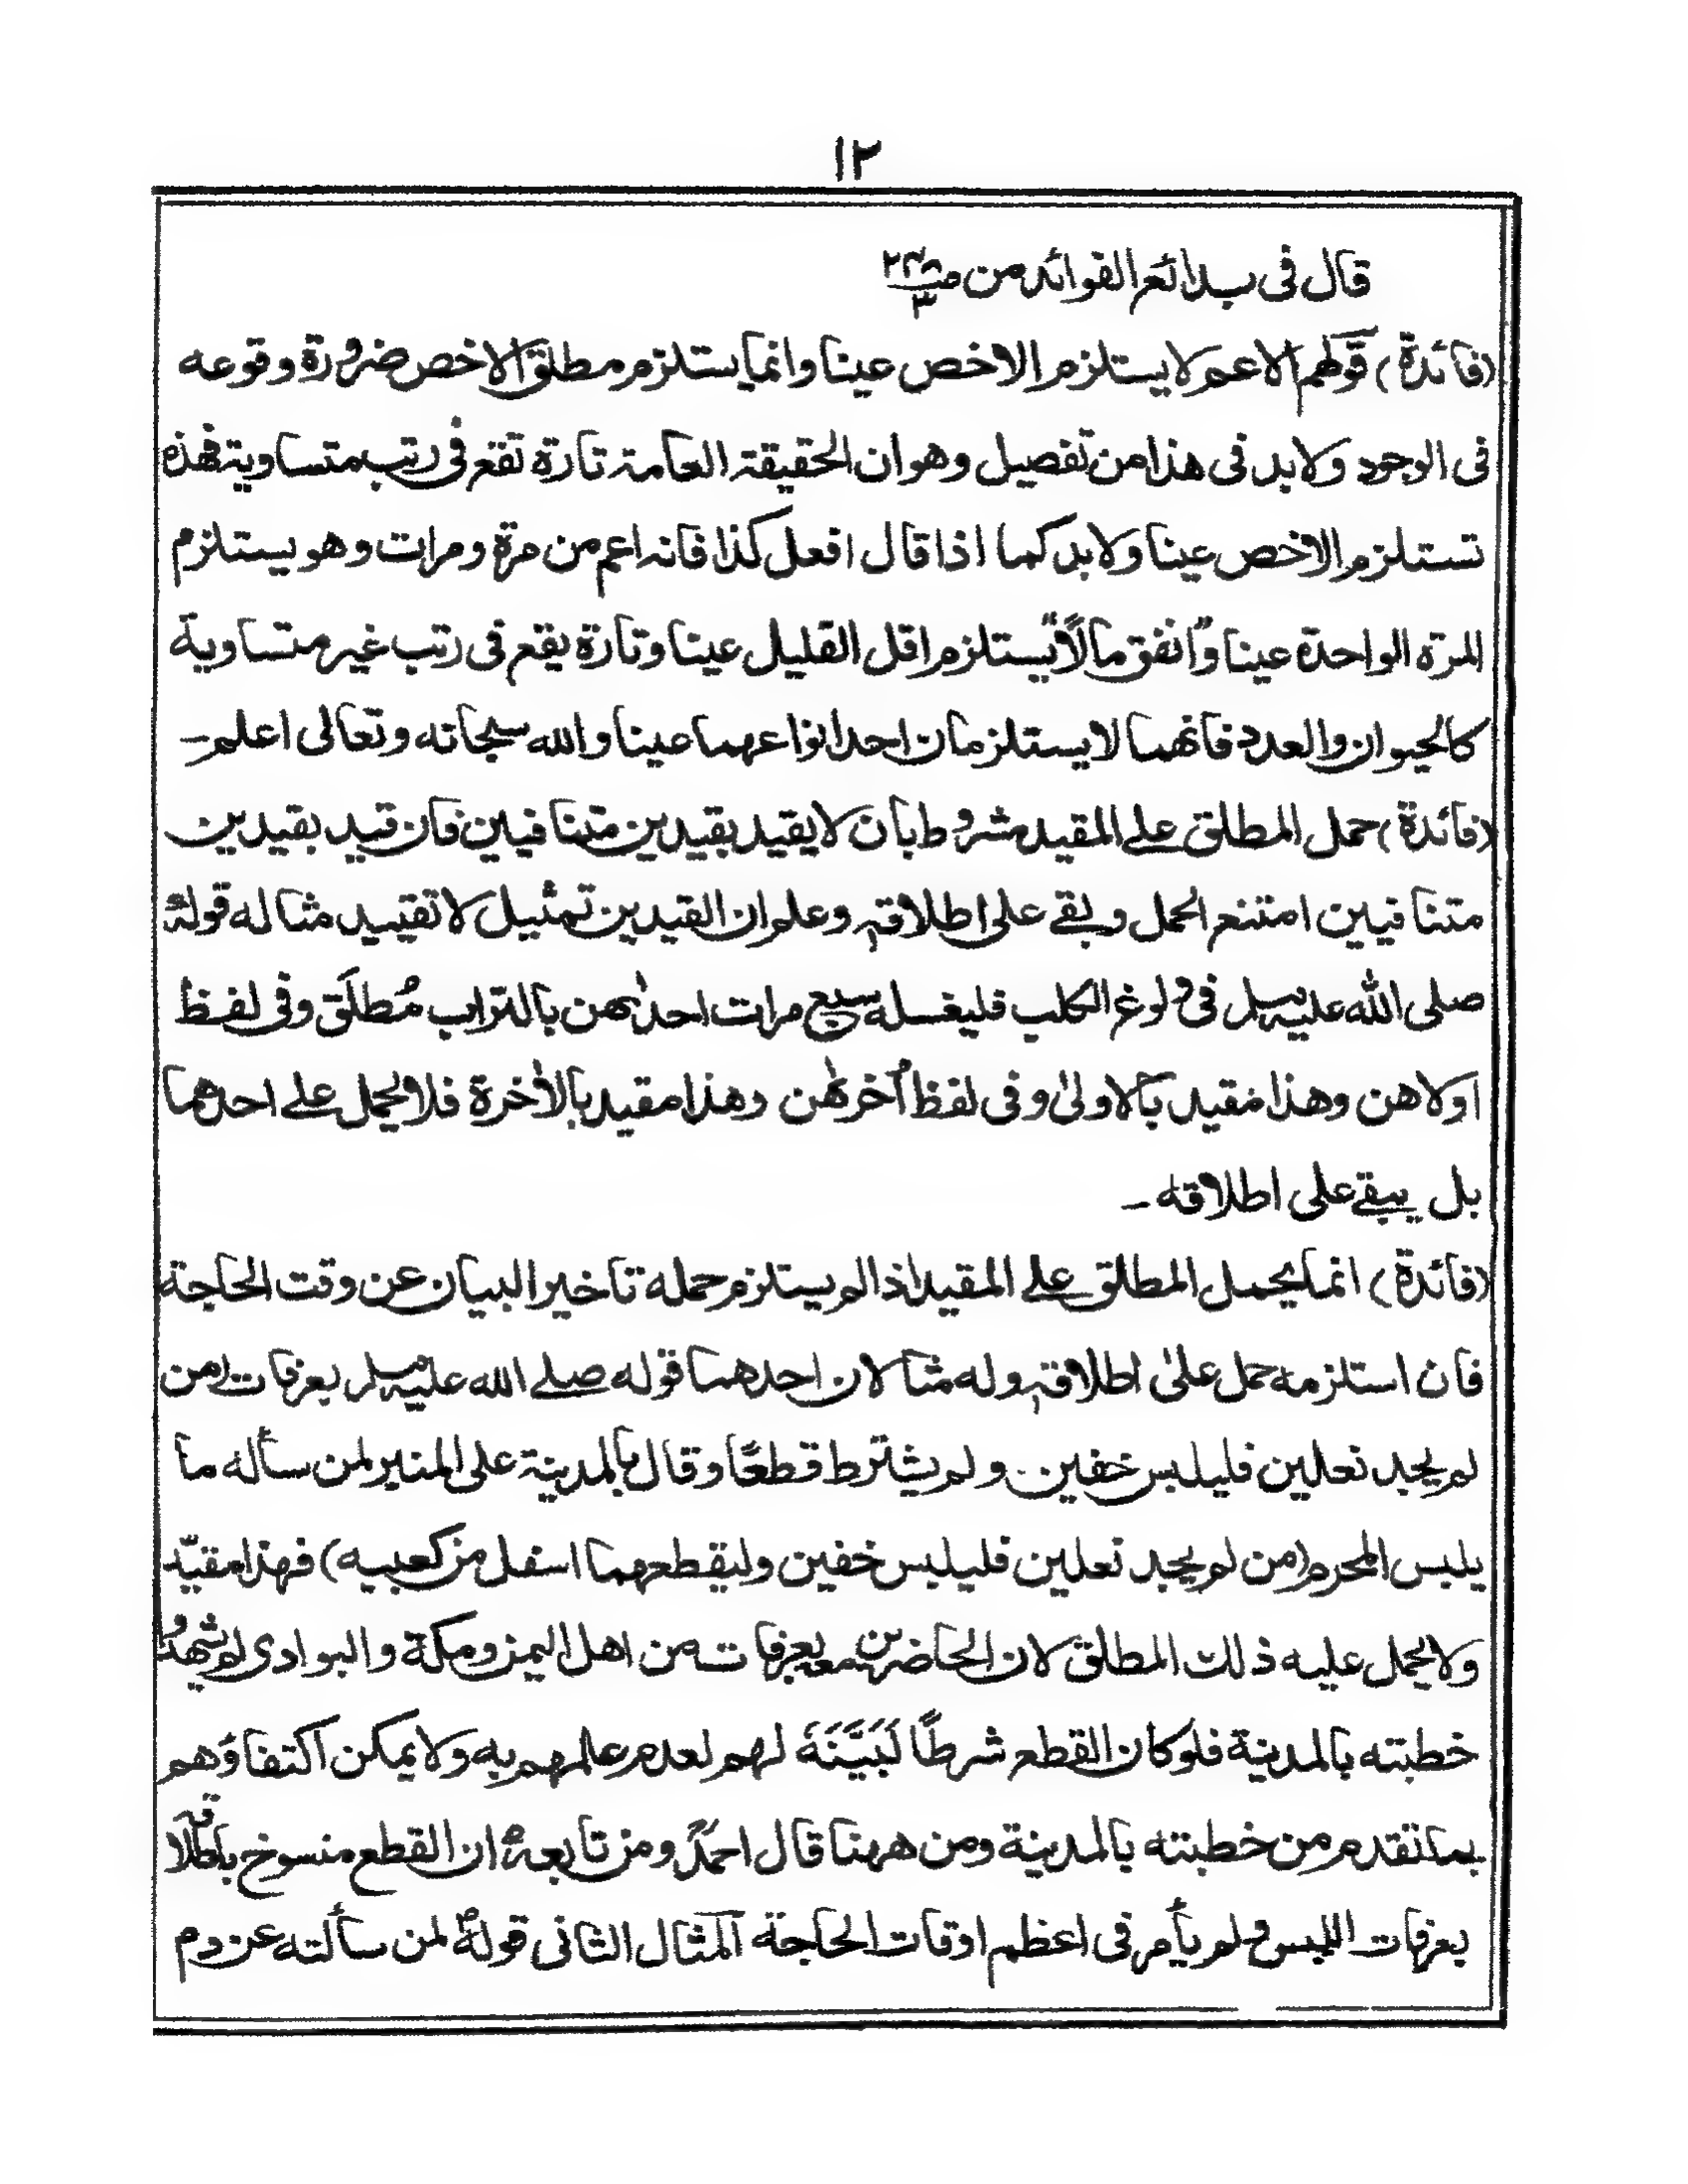 ١٢
قال فى بدائع الفوائد من ص٢٤٢ ٣
(فائدة) قولهم الاعم لا يستلزم الاخص عينا وانما يستلزم مطلق الاخص ضرورة وقوعه
فى الوجود ولابد فى هذا من تفصيل وهو ان الحقيقة العامة تارة تقع فى رتب متساوية فهذه
تستلزم الاخص عينا ولابد كما اذا قال افعل كذا فانه اعم من مرة ومرات وهو يستلزم
المرة الواحدة عينا و"انفق مالًا" يستلزم اقل القليل عينا وتارة يقع فى رتب غير متساوية
كالحيوان والعدد فانهما لا يستلزمان احد انواعهما عينا والله سبحانه وتعالى اعلم–
(فائدة) حمل المطلق علے المقيد مشروط بان لا يقيد بقيدين متنافيين فان قيد بقيدين
متنافيين امتنع الحمل وبقے على اطلاقه وعلم ان القيدين تمثيل لا تقييد مثاله قولهؐ
صلى الله عليه وسلم فى ولوغ الكلب فليغسله سبع مرات احدٰىهن بالتراب مُطلَق وفى لفظ
اولاهن وهذا مقيد بالاولىٰ وفى لفظ اُخرٰهن وهذا مقيد بالأخرة فلا يحمل علے احدهما
بل يبقے على اطلاقه –
(فائدة) انما يحمل المطلق علے المقيد اذا لم يستلزم حمله تاخير البيان عن وقت الحاجة
فان استلزمه حمل علىٰ اطلاقه وله مثالان احدهما قوله صلے الله عليه وسلم بعرفات (من
لم يجد نعلين فليلبس خفين ولم يشترط قطعًا وقال بالمدينة على المنبر لمن سأله ما
يلبس المحرم (من لم يجد نعلين فليلبس خفين وليقطعهما اسفل من كعبيه) فهذا مقيّد
ولا يحمل عليه ذلك المطلق لان الحاضرين معه بعرفات من اهل اليمن ومكة والبوادى لم يشهدُوا
خطبته بالمدينة فلو كان القطع شرطًا لَبَيَّنَهٗ لهم لعدم علمهم به ولا يمكن اكتفاؤهم
بما تقدم من خطبته بالمدينة ومن ههنا قال احمدؒ ومن تابعهؒ ان القطع منسوخ باطلاقه
بعرفات اللبس ولم يأمر فى اعظم اوقات الحاجة اَلمثال الثانى قولهؐ لمن سألته عن دم